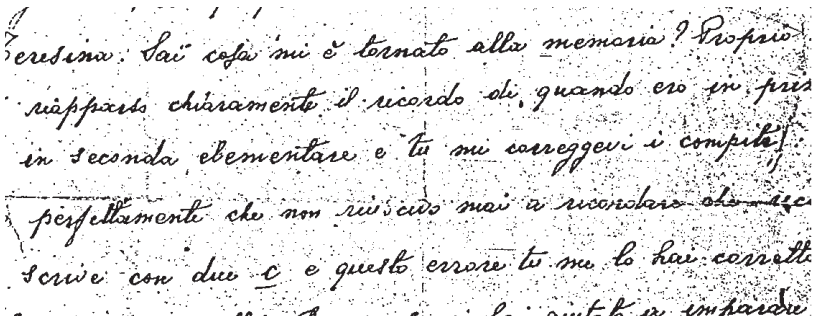 Teresina. Sai cosa mi è tornato alla memoria? Proprio
riapparso chiaramente il ricordo di quando ero in
in seconda elementare e tu mi correggevi i compiti
perfettamente che non riuscivo mai a ricordare che
scrive con due c e questo errore tu me lo hai corretto
imparare